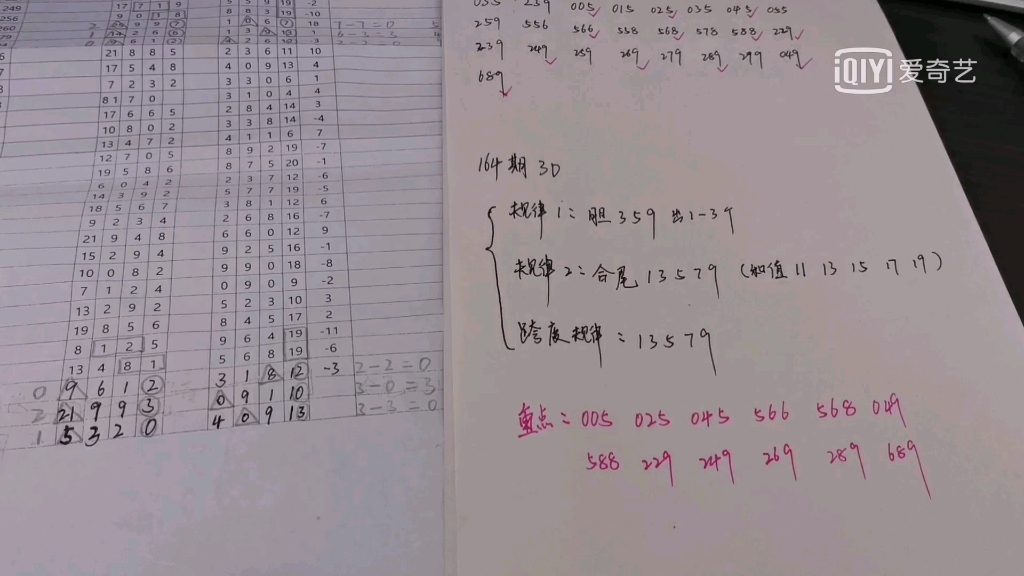 005 015 025 035 045 055
259 556 566 558 568 578 588 229
239 249 259 269 279 289 299 049
689
iQIYI 爱奇艺
164期 3D
规律1: 胆359出1-3个
规律2: 合尾13579 (和值 11 13 15 17 19)
跨度规律: 13579
重点: 005 025 045 566 568 049
588 229 249 269 289 689
21 8 8 5 2 3 6 11 10
17 5 4 8 4 0 9 13 4
7 2 3 2 3 3 0 6 1
8 1 7 0 3 1 0 4 4
17 6 6 5 2 8 4 14 3
10 8 0 2 3 3 8 14 -4
13 4 7 2 4 1 1 6 7
12 7 0 5 8 9 2 19 -7
19 5 8 6 8 7 5 20 -1
6 0 4 2 2 3 7 12 -6
14 3 9 2 5 7 7 19 -5
18 5 6 7 3 8 1 12 6
9 2 3 4 2 6 8 16 -7
21 9 4 8 6 6 0 12 9
15 2 9 4 9 2 5 16 -1
10 0 8 2 9 9 0 18 -8
7 1 2 4 0 9 0 9 -2
13 2 9 2 5 2 3 10 3
19 8 5 6 8 4 5 17 2
8 1 2 5 9 6 4 19 -11
13 4 8 1 5 6 8 19 -6
0 9 6 1 2 3 1 8 12 -3 2-2=0
2 21 9 9 3 0 9 1 10 3-0=3
1 5 3 2 0 4 0 9 13 3-3=0